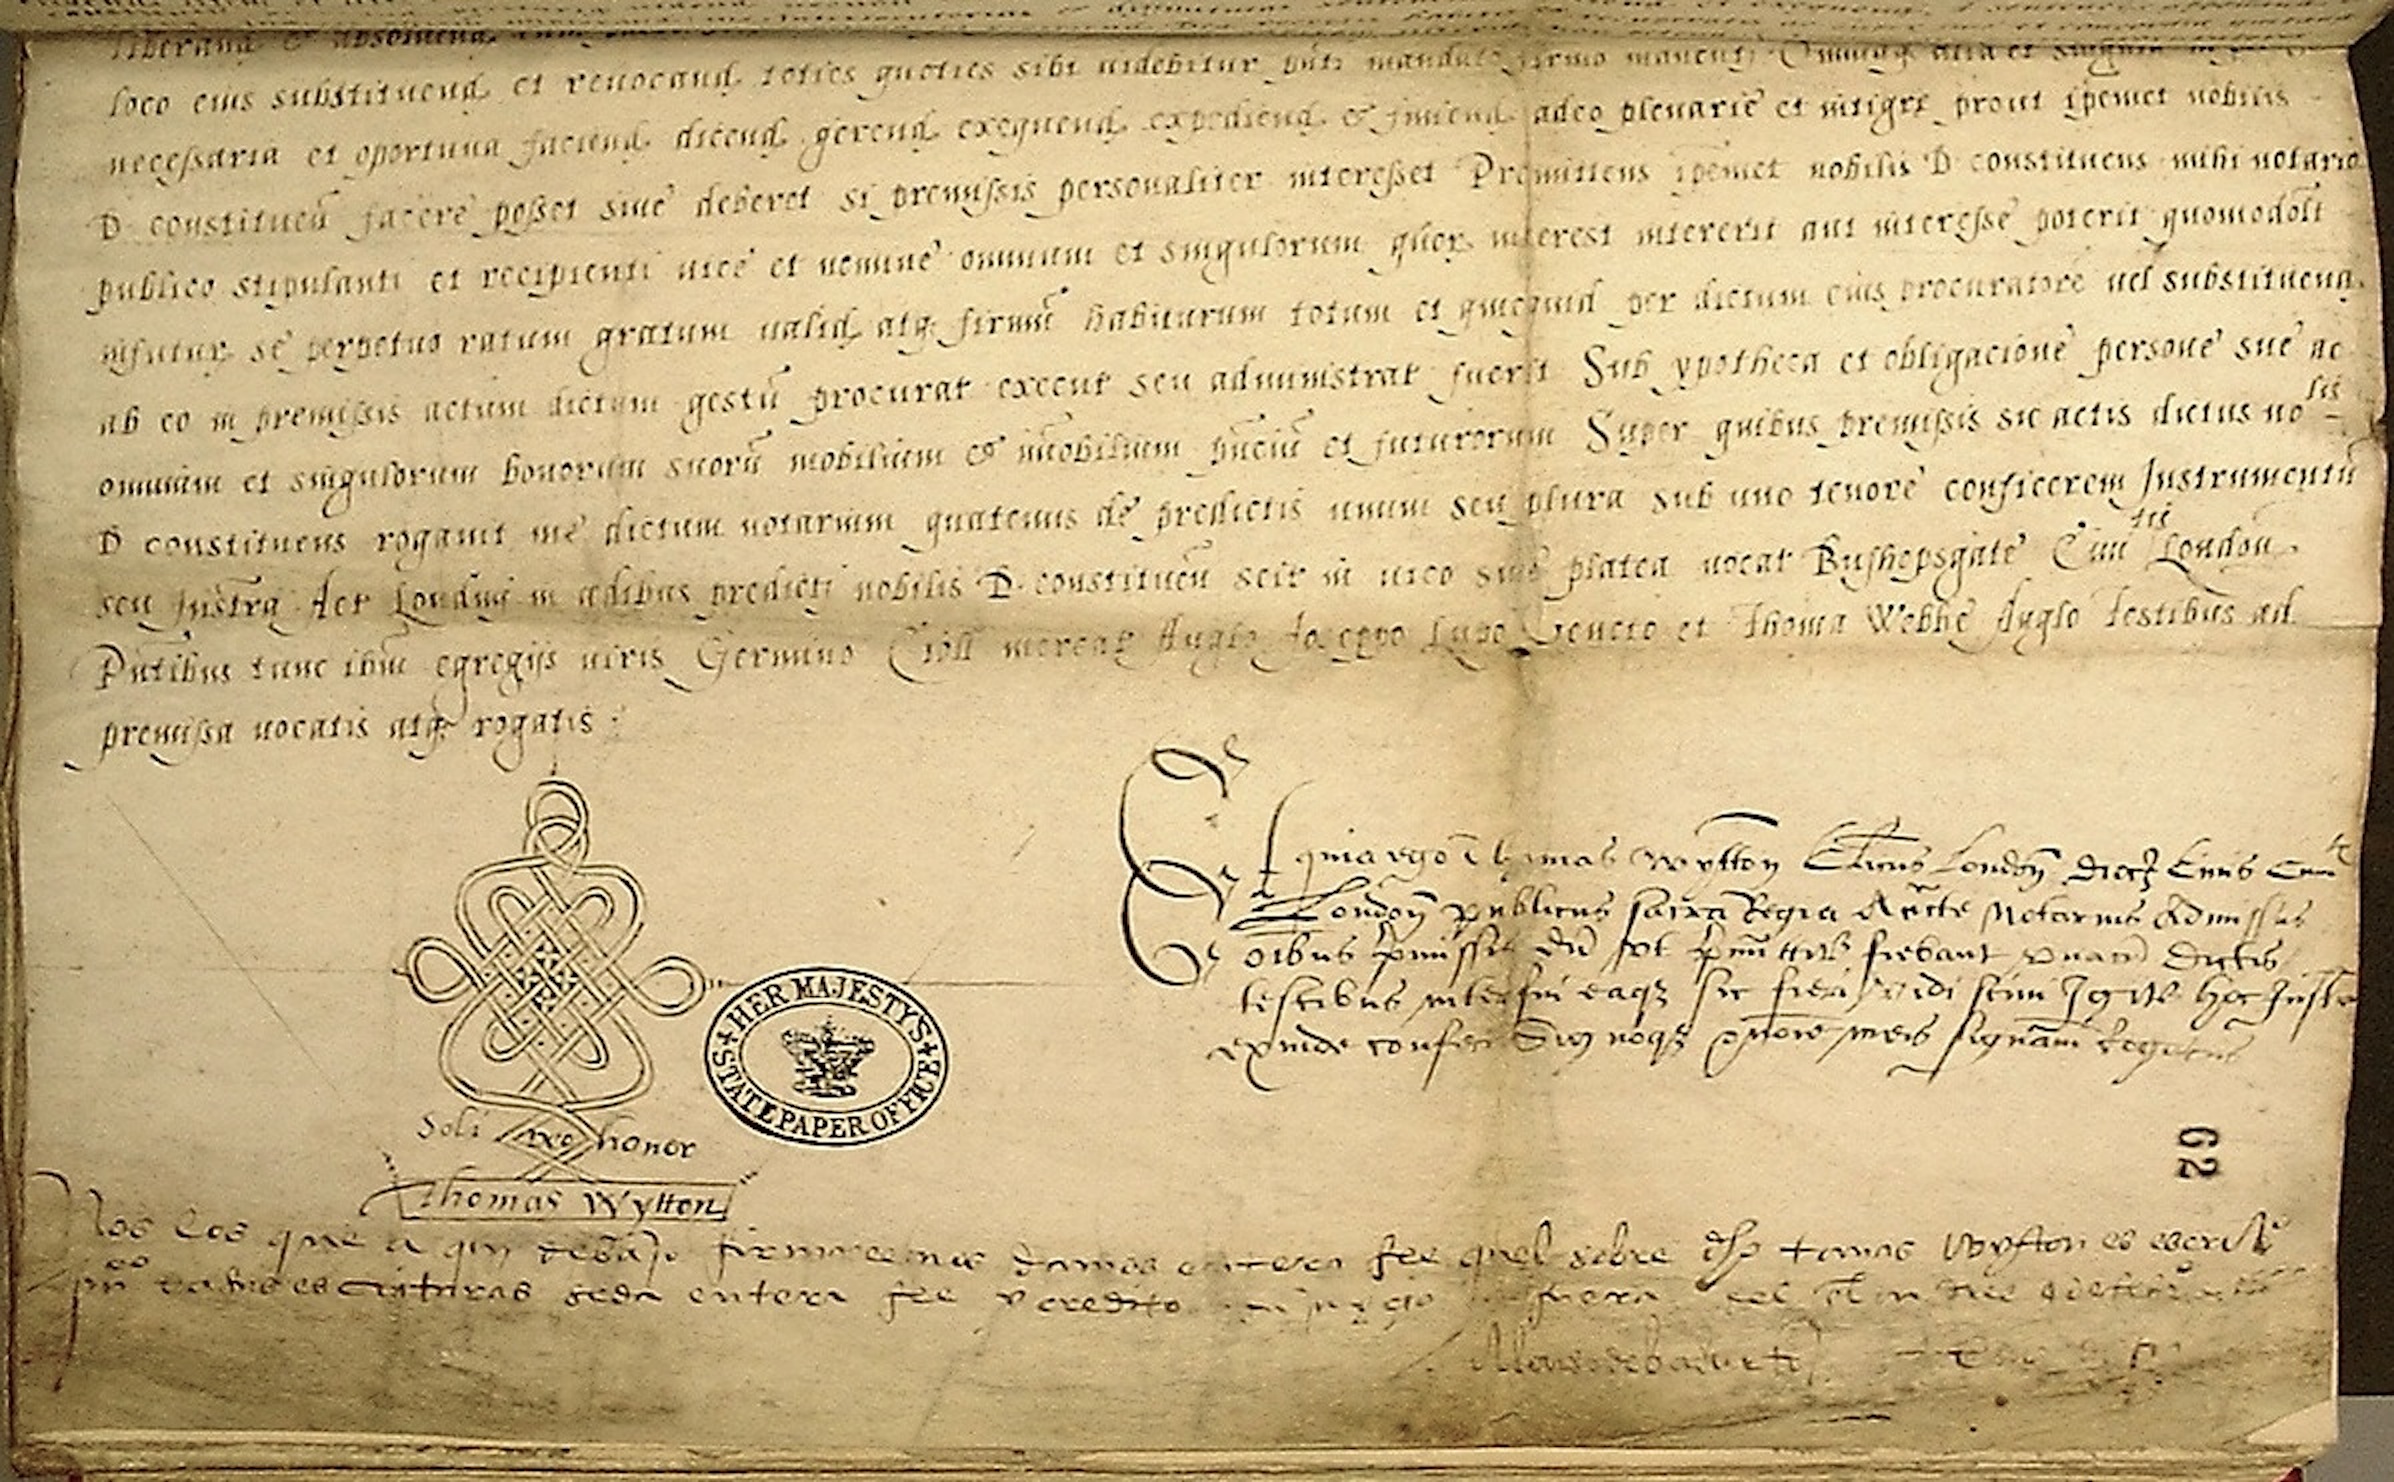 liberand & absoluend
loco eius substituend et reuocand toties quoties sibi uidebitur pnti mandato firmo manent Omniaq alia et singula
necessaria et oportuna faciend dicend gerend exequend expediend & finiend adeo plenarie et integre prout ipemet nobilis
D constituen facere posset siue deberet si premissis personaliter interesset Promittens ipemet nobilis D constituens mihi notario
publico stipulanti et recipienti uice et nomine omnium et singulorum quor interest intererit aut interesse poterit quomodolt
infutur se perpetuo ratum gratum ualid atq firmu habiturum totum et quicquid per dictum eius procuratore uel substituend
ab eo in premissis actum dictum gestu procurat execut seu administrat fuerit Sub ypotheca et obligacione persone sue ac
omnium et singulorum bonorum suoru mobilium & imobilium pnciu et futurorum Super quibus premissis sic actis dictus nolis
D constituens rogauit me dictum notarium quatenus de predictis unum seu plura sub uno tenore conficerem Instrumentu
seu Instra Act Londini in ædibus predicti nobilis D constituen scit in uico siue platea uocat Bushepsgate Ciuitis London
Pntibus tunc ibm egregijs uiris Germino Cioll mercat Anglo Joseppo Lupo Veneto et Thoma Webbe Anglo Testibus ad
premissa uocatis atq rogatis
Et quia ego Thomas Wytton Clicus London dicte Ciuis Ciuitis
London publicus sacra Regia Aucte Notarius Admissus
oibus pmissis du sot pmittit fiebant vnacu dictis
testibus interfui eaq sic fieri vidi sciui Igitur hoc Instr
exinde confeci Signoq noie meis signaui Rogatus
HER MAJESTY'S STATE PAPER OFFICE
Soli Deo honor
Thomas Wytton
62
Nos los que a qui debajo firmaremos damos entera fee quel sobre dho tomas Wytton es escriuo
puco sus escripturas se da entera fee y credito en juyzio fuera del